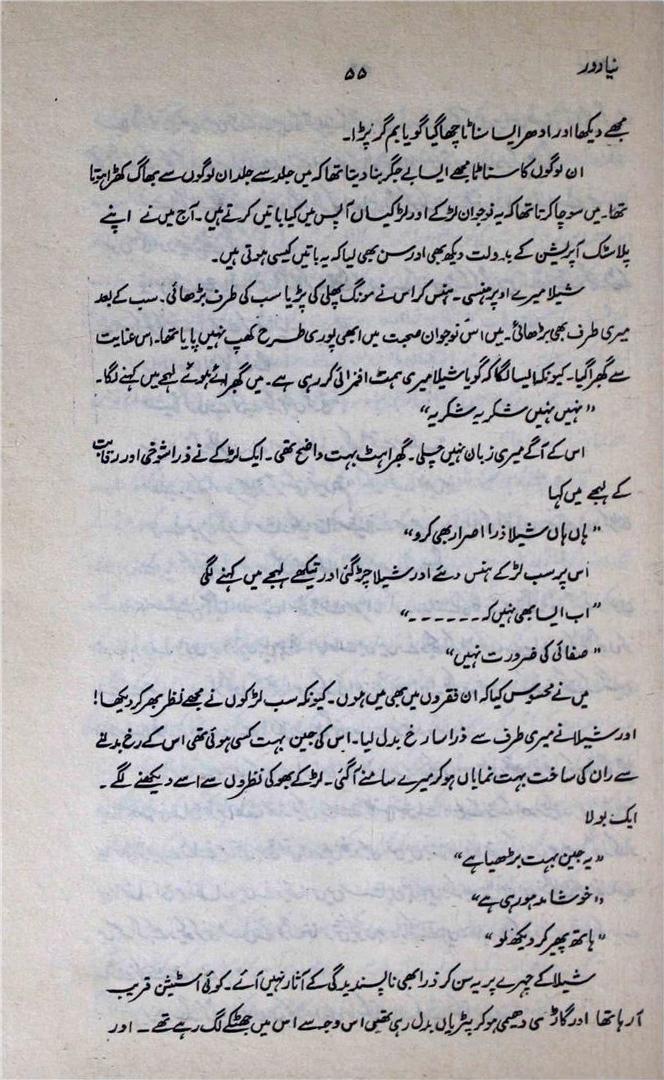 نیا دور
۵۵
مجھے دیکھا اور ادھر ایسا سناٹا چھا گیا گویا بم گر پڑا۔
ان لوگوں کا سناٹا مجھے ایسا بے جگر بنا دیتا تھا کہ میں جلد سے جلد ان لوگوں سے بھاگ کھڑا ہوتا
تھا۔ میں سوچا کرتا تھا کہ یہ نوجوان لڑکے اور لڑکیاں آپس میں کیا باتیں کرتے ہیں۔ آج میں نے اپنے
پلاسٹک آپریشن کے بدولت دیکھ بھی اور سن بھی لیا کہ یہ باتیں کیسی ہوتی ہیں۔
شیلا میرے اوپر ہنسی۔ ہنس کر اس نے مونگ پھلی کی پڑیا سب کی طرف بڑھائی۔ سب کے بعد
میری طرف بھی بڑھائی۔ میں اس نوجوان صحبت میں ابھی پوری طرح کھپ نہیں پایا تھا۔ اس عنایت
سے گھبرا گیا۔ کیونکہ ایسا لگا کہ گویا شیلا میری ہمت افزائی کر رہی ہے۔ میں گھبرائے ہوئے لہجے میں کہنے لگا۔
"نہیں نہیں شکریہ شکریہ"
اس کے آگے میری زبان نہیں چلی۔ گھبراہٹ بہت واضح تھی۔ ایک لڑکے نے ذرا شوخی اور رقابت
کے لہجے میں کہا
"ہاں ہاں شیلا ذرا اصرار بھی کرو"
اس پر سب لڑکے ہنس دئے اور شیلا چڑ گئی اور تیکھے لہجے میں کہنے لگی
"اب ایسا بھی نہیں کہ ۔۔۔۔۔۔"
"صفائی کی ضرورت نہیں"
میں نے محسوس کیا کہ ان فقروں میں بھی میں ہوں۔ کیونکہ سب لڑکوں نے مجھے نظر بھر کر دیکھا!
اور شیلا نے میری طرف سے ذرا سا رخ بدل لیا۔ اس کی جین بہت کسی ہوئی تھی اس کے رخ بدلنے
سے ران کی ساخت بہت نمایاں ہو کر میرے سامنے آ گئی۔ لڑکے بھوکی نظروں سے اسے دیکھنے لگے۔
ایک بولا
"یہ جین بہت بڑھیا ہے"
"خوشامد ہو رہی ہے"
"ہاتھ پھیر کر دیکھ لو"
شیلا کے چہرے پر یہ سن کر ذرا بھی ناپسندیدگی کے آثار نہیں آئے۔ کوئی اسٹیشن قریب
آ رہا تھا اور گاڑی دھیمی ہو کر پٹریاں بدل رہی تھی اس وجہ سے اس میں جھٹکے لگ رہے تھے۔ اور